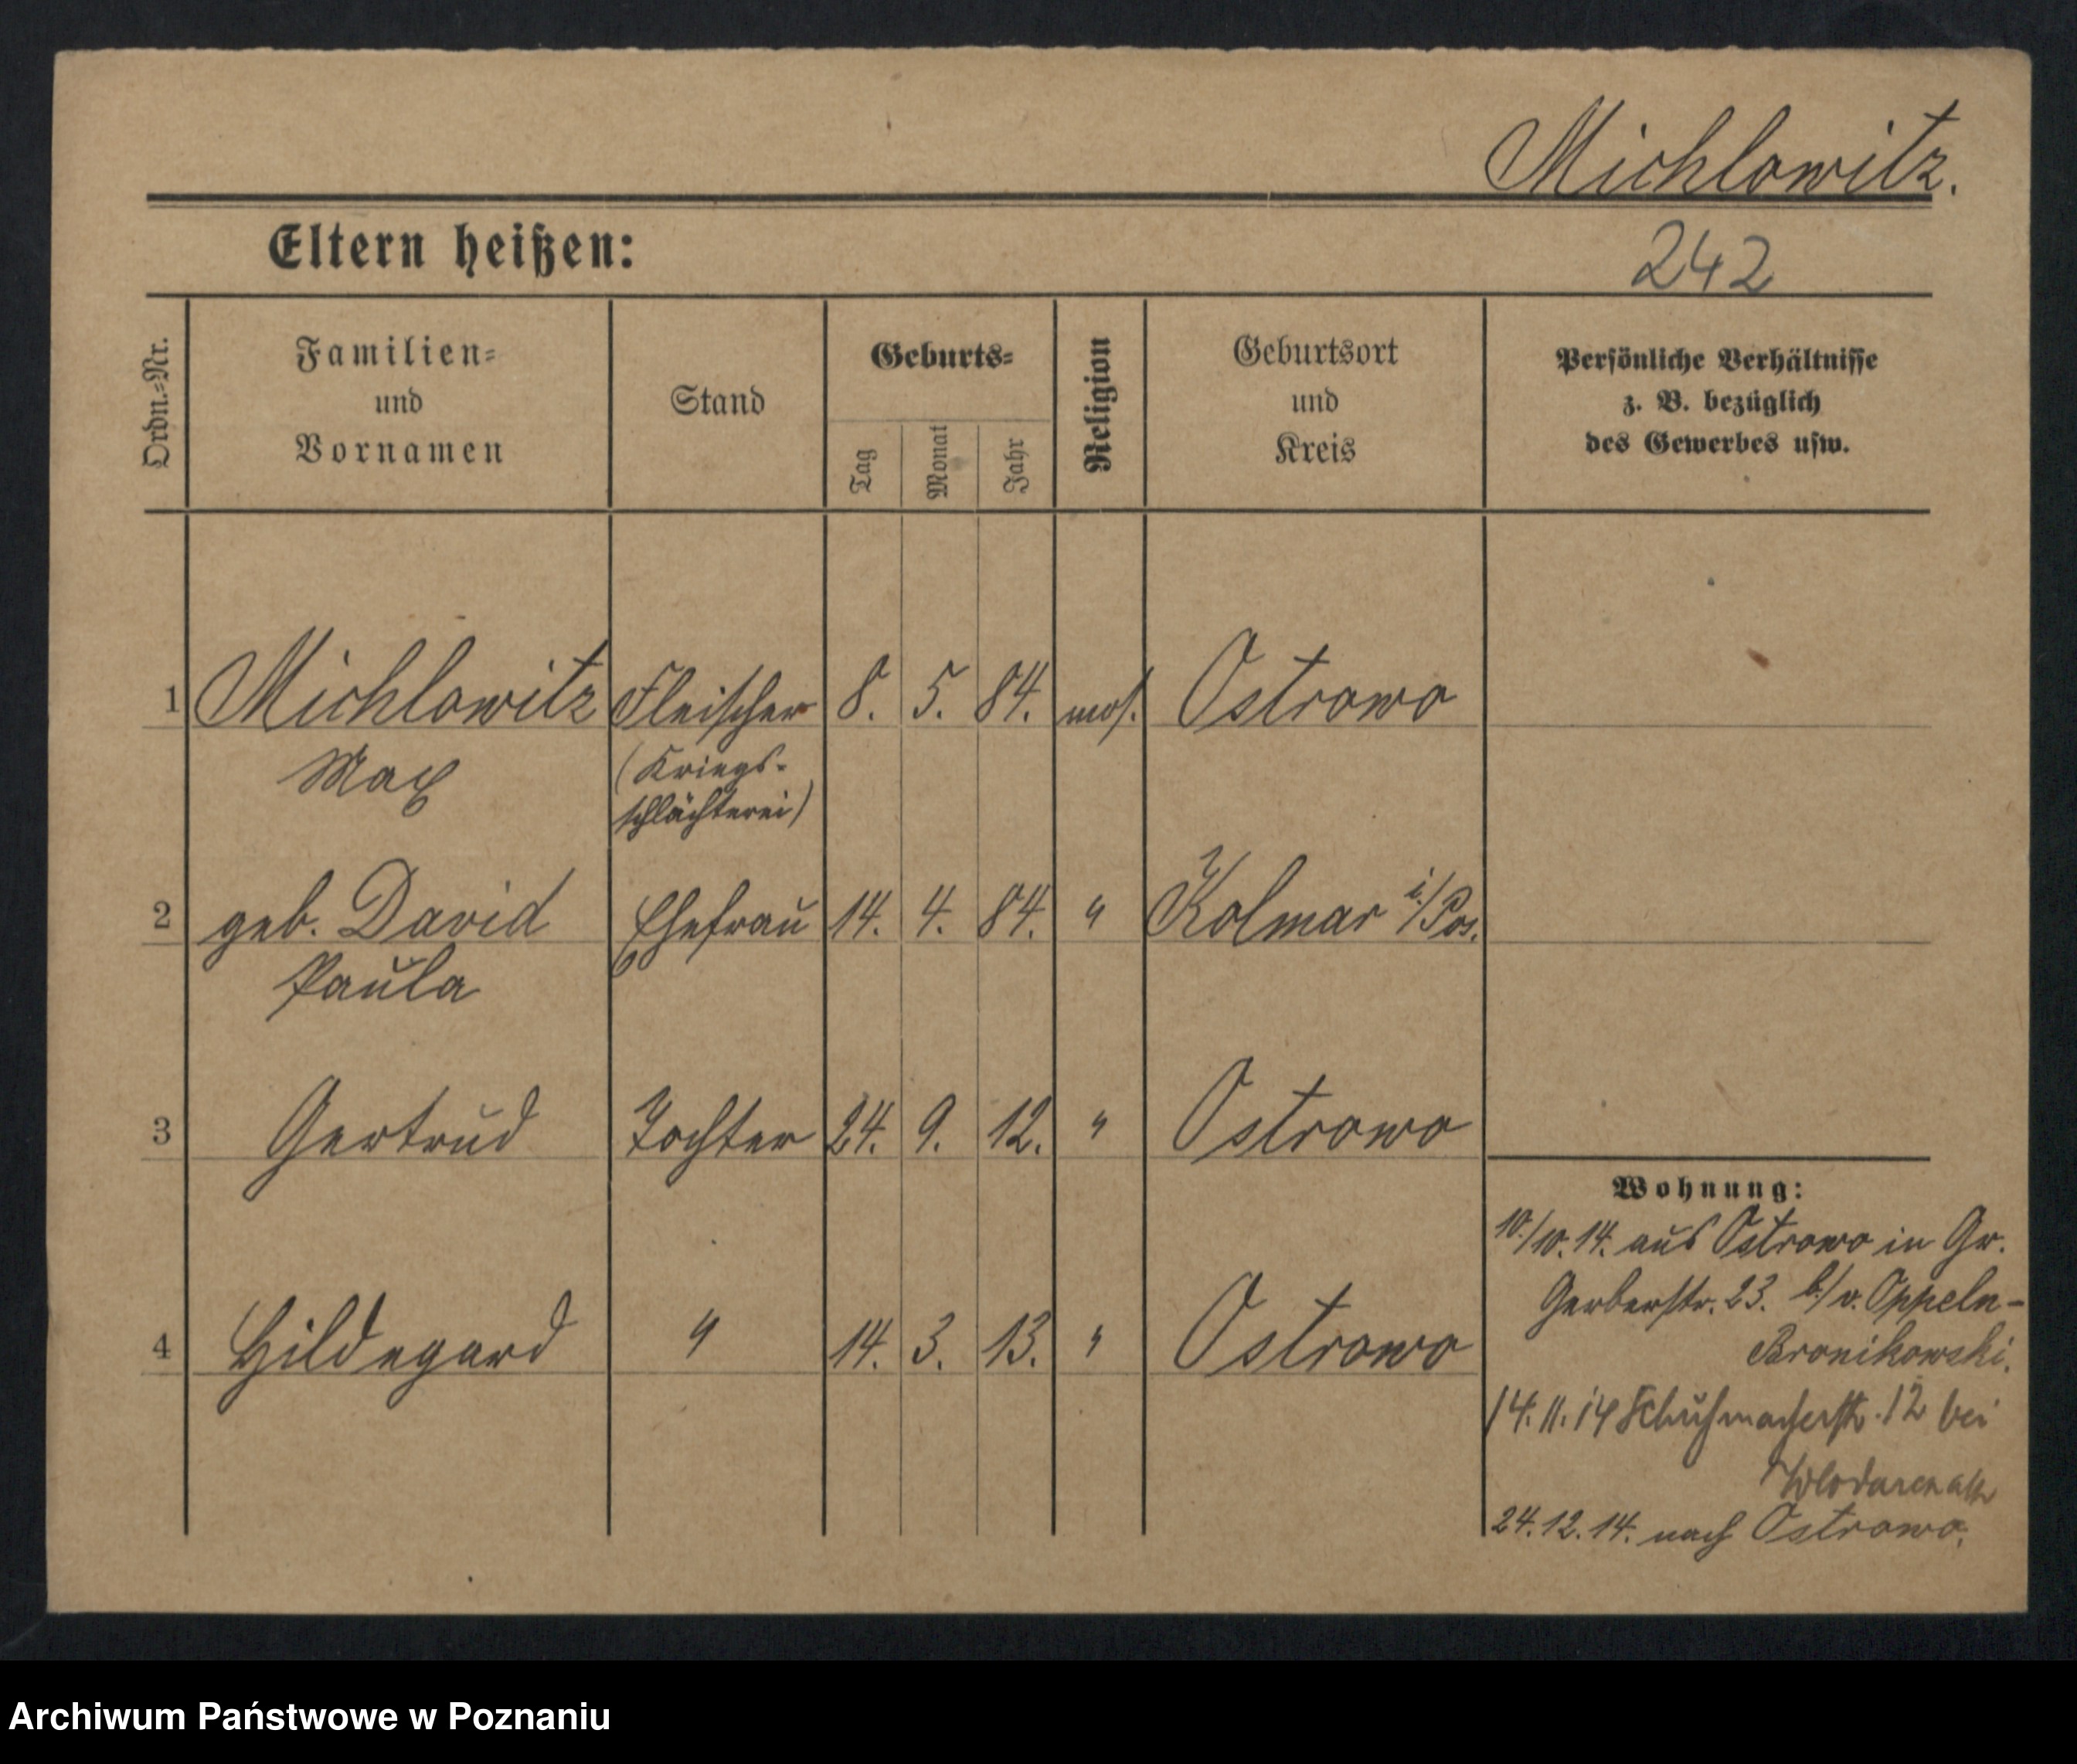 Michlowitz.
Eltern heißen:
242
Ordn.-Nr.
Familien-
und
Vornamen
Stand
Geburts-
Tag
Monat
Jahr
Religion
Geburtsort
und
Kreis
Persönliche Verhältnisse
z. B. bezüglich
des Gewerbes usw.
1 Michlowitz Fleischer 8. 5. 84. mos. Ostrowo
Max (Kriegs-
schlächterei)
2 geb. David Ehefrau 14. 4. 84. " Kolmar i/Pos.
Paula
3 Gertrud Tochter 24. 9. 12. " Ostrowo
4 Hildegard " 14. 3. 13. " Ostrowo
Wohnung:
10./10.14. aus Ostrowo in Gr.
Gerberstr. 23. b/ v. Oppeln-
Bronikowski.
14.11.14 Schuhmacherstr. 12 bei
24.12.14. nach Ostrowo.
Archiwum Państwowe w Poznaniu